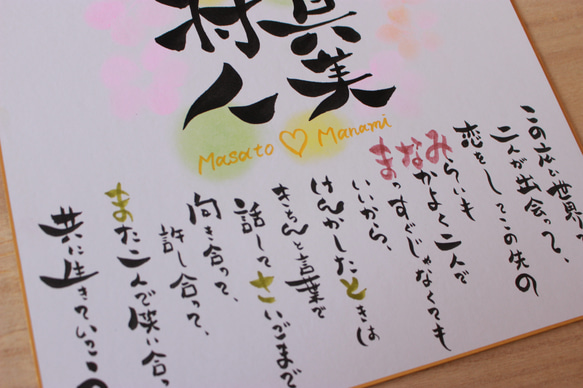 真美
人
Masato ♡ Manami
この広い世界で
二人が出会って、
恋をしてこの先の
みらいも
なかよく二人で
まっすぐじゃなくても
いいから、
けんかしたときは
きちんと言葉で
話してさいごまで
向き合って、
許し合って、
また二人で笑い合っ
共に生きていこ